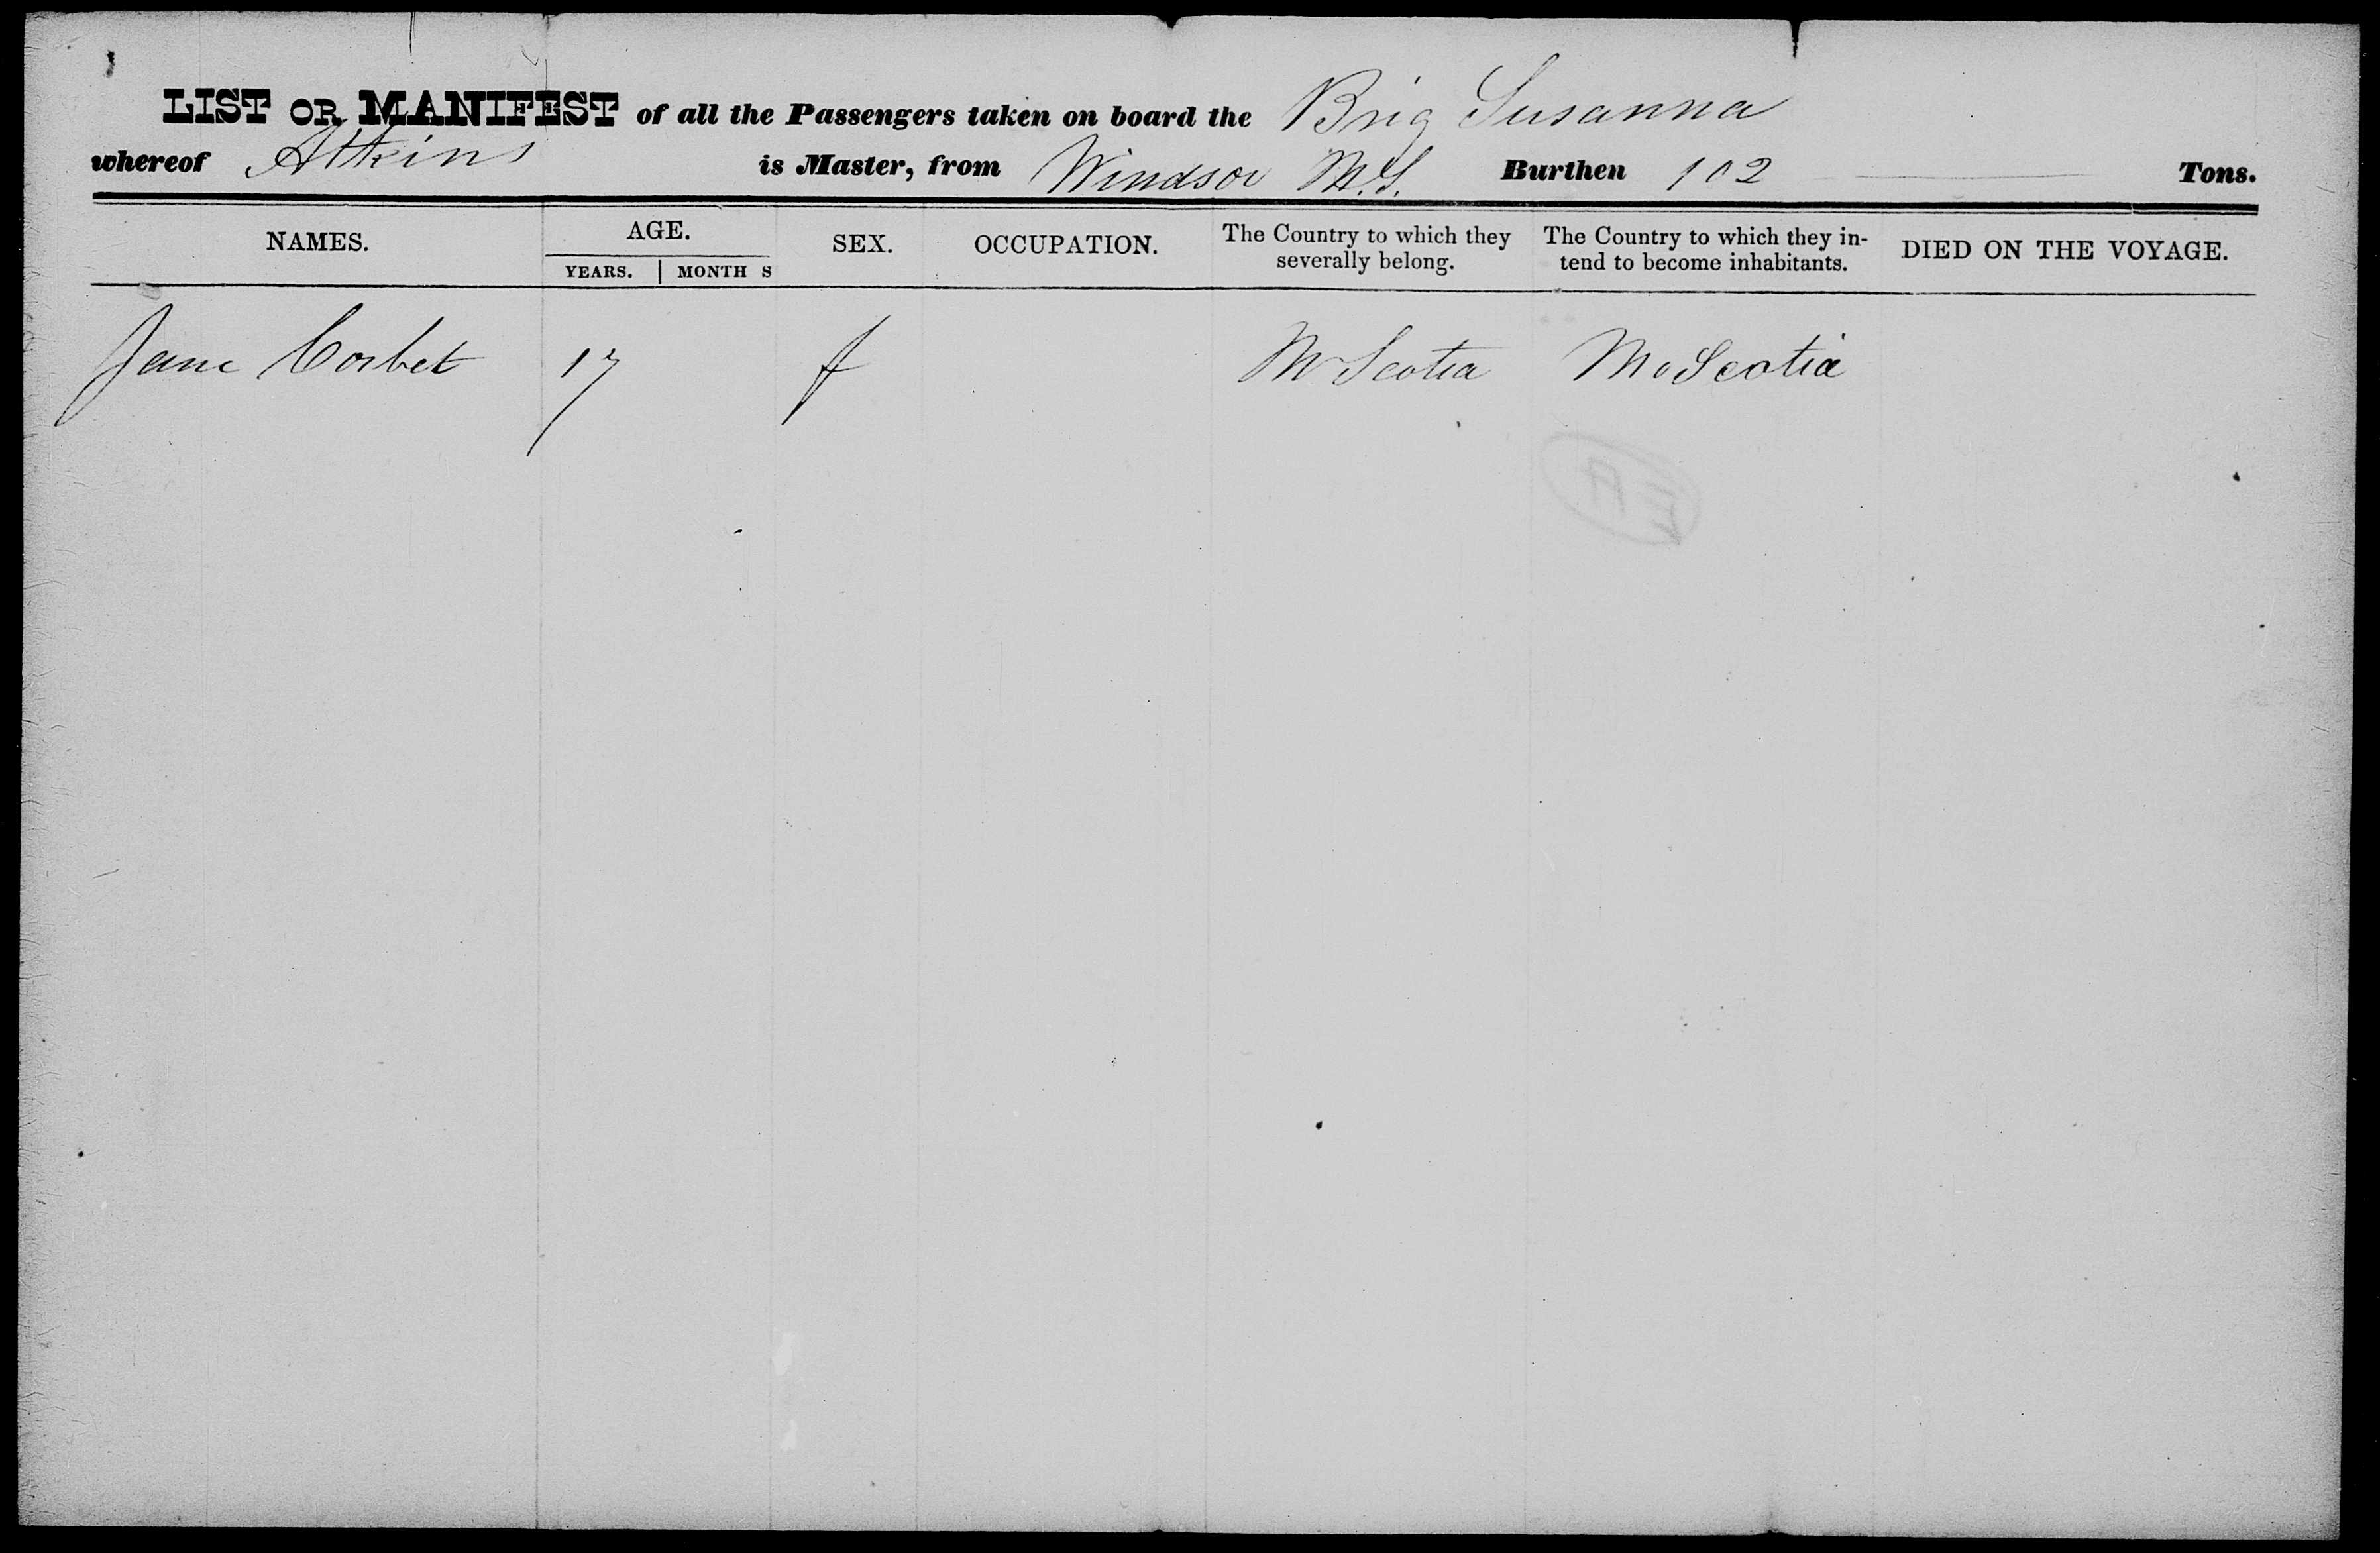 LIST OR MANIFEST of all the Passengers taken on board the Brig Susanna
whereof Atkins is Master, from Windsor N.S. Burthen 102 Tons.
NAMES. AGE. SEX. OCCUPATION. The Country to which they severally belong. The Country to which they intend to become inhabitants. DIED ON THE VOYAGE.
YEARS. MONTH S
Jane Corbet 17 f N Scotia N Scotia
EA